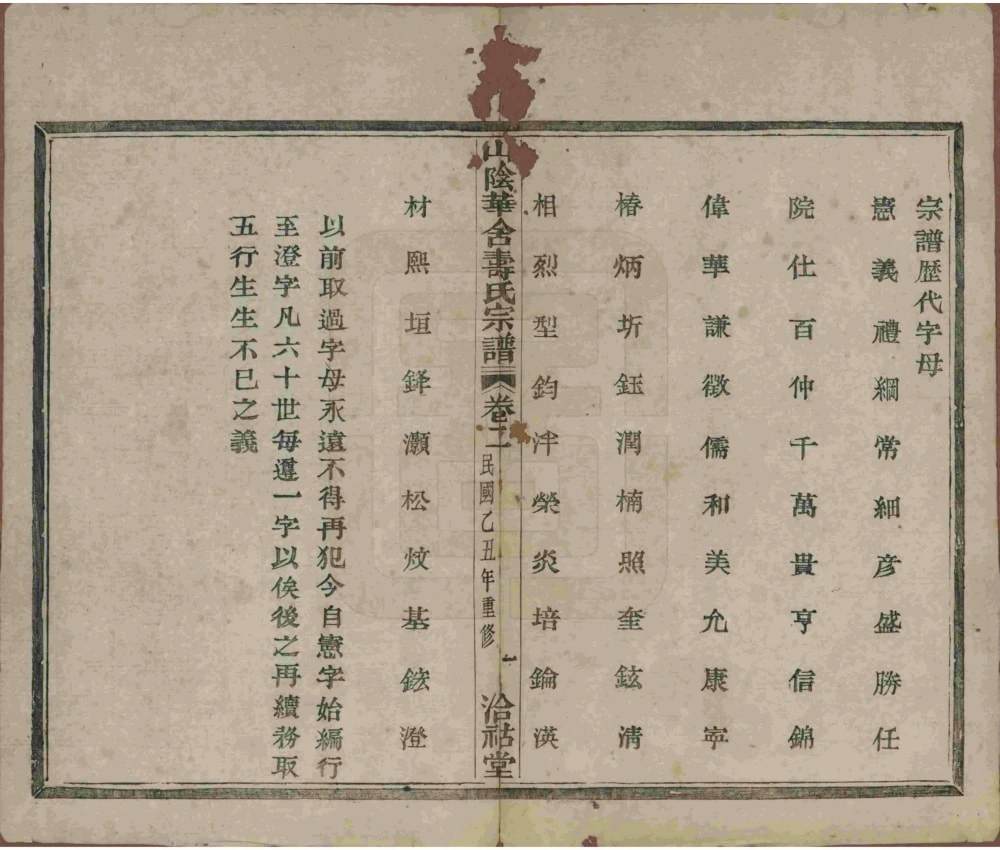 宗譜歷代字母
憲義禮綱常細彦盛勝任
院仕百仲千萬貴亨信錦
偉華謙徵儒和美允康寕
椿炳圻鈺潤楠照奎鉉清
相烈型鈞泮榮炎培錀渶
山陰華舍壽氏宗譜 卷二 民國乙丑年重修 一 洽祜堂
材熙垣鐸灝松炆基鋐澄
以前取過字母永遠不得再犯今自憲字始編行
至澄字凡六十世每遞一字以俟後之再續務取
五行生生不已之義